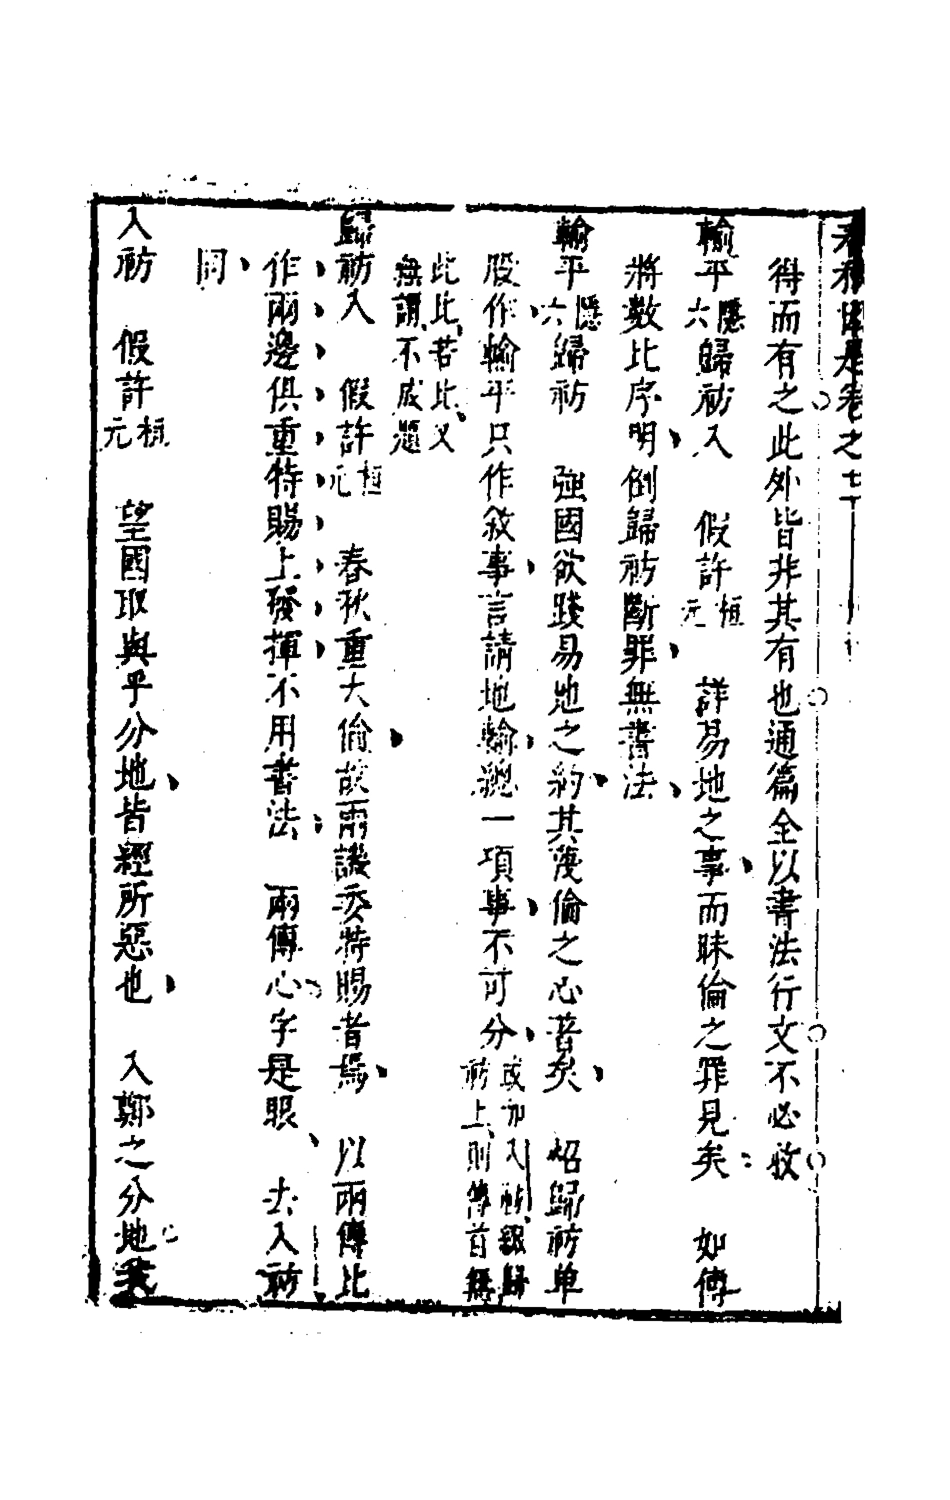 春秋因是卷之七
得而有之此外皆非其有也通篇全以書法行文不必收
輸平隱六歸祊入 假許桓元 詳易地之事而昧倫之罪見矣 如傳
將數比序明倒歸祊斷罪無書法
輸平隱六歸祊 強國欲踐易地之約其蔑倫之心著矣 紹歸祊单
股作輸平只作敘事言請地輸總一項事不可分或加入祊銀歸祊上則傳首無
此比若比又無謂不成題
歸祊入 假許桓元 春秋重大倫故兩譏委特賜者焉 以兩傳比
作兩邊俱重特賜上發揮不用書法 兩傳心字是眼 去入祊
同
入祊 假許桓元 望國取與乎分地皆經所惡也 入鄭之分地我